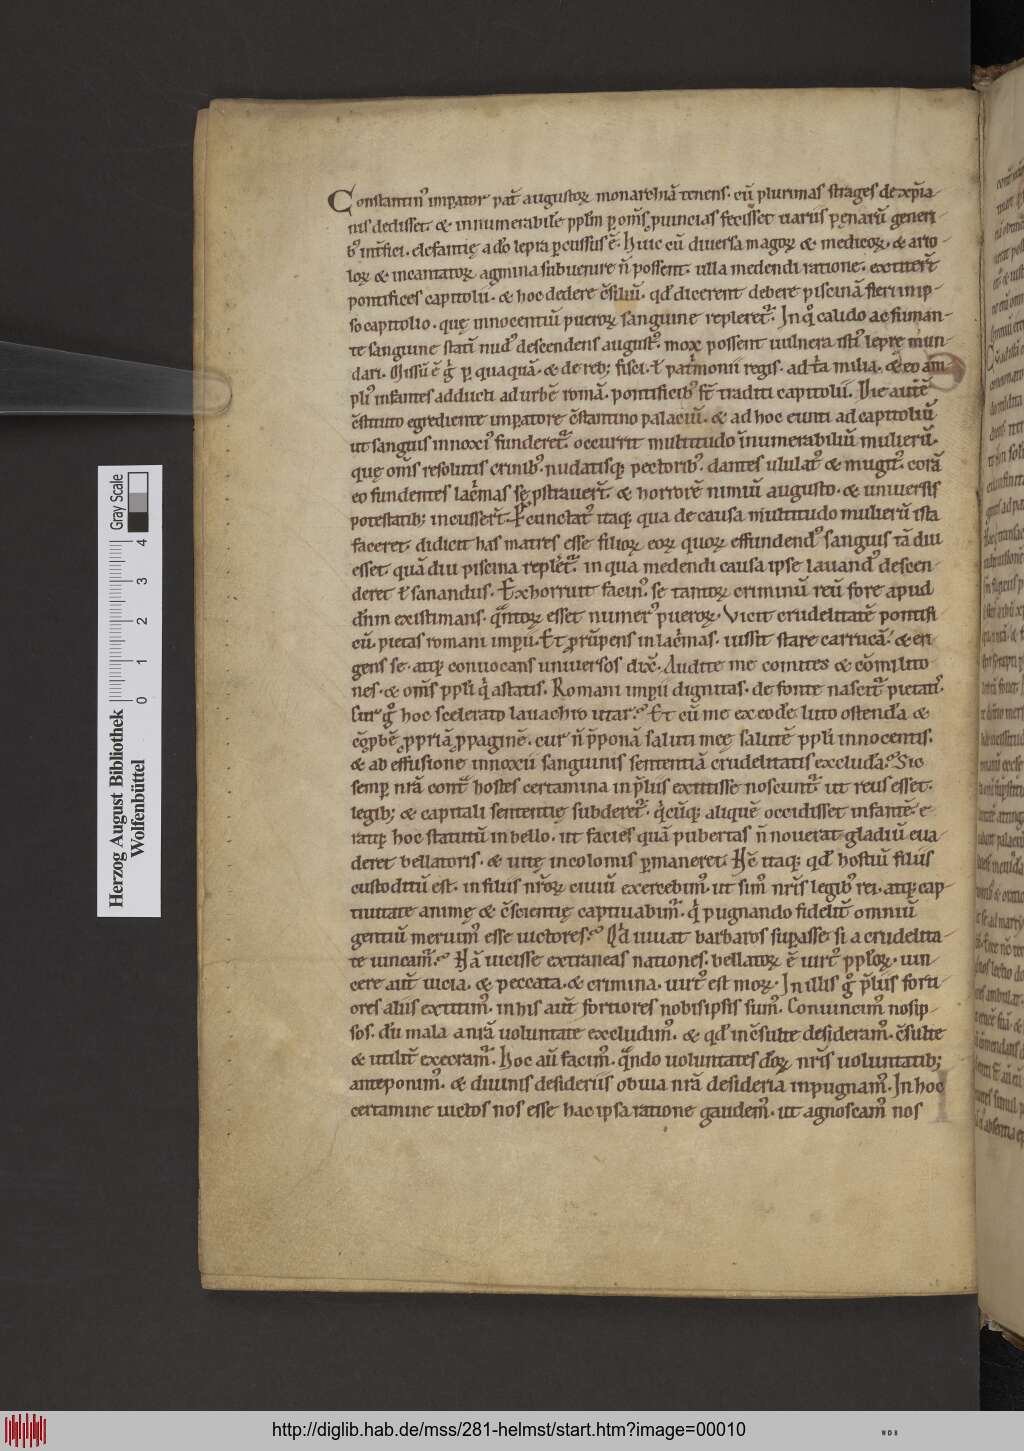 Constantinꝰ impator pat̄ augustoꝝ monarchiā tenens. cū plurimas strages de xp̄ia-
nis dedisset. & innumerabilē pp̄lm ꝑ om̄s ꝓuincias fecisset uariis penarū generi-
bꝰ int̄fici. elefantię a dō lepra ꝑcussus ē. Huic cū diuersa magoꝝ & medicoꝝ. & ario-
loꝝ & incantatoꝝ agmina subuenire n̄ possent. ulla medendi ratione. extitert̄
pontifices capitolii. & hoc dedere c̄siliū. qd̄ dicerent debere piscinā fieri imp-
so capitolio. quę innocentiū pueroꝝ sanguine repleret᷑. In qͦ calido ac fuman-
te sanguine statī nudꝰ descendens augustꝰ. mox possent uulnera istiꝰ leprę mun-
dari. Missū ē gͥ ꝑ quaquā. & de rebꝫ fisci. ł patͥmonii regis. ad tͥa milia. & eo am-
pliꝰ infantes adducti ad urbē romā. pontificibꝰ st̄ traditi capitolii. Die autē
c̄stituto egrediente impatore c̄stantino palaciū. & ad hoc eunti ad capitoliū
ut sanguis innoxiꝰ funderet᷑. occurrit multitudo īnumerabiliū mulierū.
que om̄s resolutis crinibꝰ. nudatisqꝫ pectoribꝰ. dantes ululatꝰ & mugitꝰ. corā
eo fundentes lacͥmas se ꝓstrauert̄. & horrorē nimiū augusto. & uniuersis
potestatibꝫ incussert̄. Pcunctatꝰ itaqꝫ qua de causa multitudo mulierū ista
faceret. didicit has matres esse filioꝝ eoꝝ quoꝝ effundendꝰ sanguis tā diu
esset quā diu piscina replet᷑. in qua medendi causa ipse lauandꝰ descen-
deret ł sanandus. Exhorruit facinꝰ. se tantoꝝ criminū reū fore apud
dn̄m existimans. qͣntoꝝ esset numerꝰ pueroꝝ. Vicit crudelitatē pontifi-
cū. pietas romani impii. Et ꝓrūpens in lacͥmas. iussit stare carrucā. & eri-
gens se. atqꝫ conuocans uniuersos dix̄. Audite me comites & cōmilito-
nes. & om̄s pp̄li qͥ astatis. Romani impii dignitas. de fonte nascit᷑ pietatꝭ.
Cur gͦ hoc scelerato lauachro utar? Et cū me ex eodē luto ostendā &
c̄ꝓbē ꝓpriā ꝓpaginē. cur n̄ p̄ponā saluti meę salutē pp̄li innocentis.
& ab effusione innoxii sanguinis sententiā crudelitatis excludā? Sic
semꝑ nrā cont̄ hostes certamina in p̄liis extitisse noscunt᷑. ut reus esset
legibꝫ & capitali sententię subderet᷑. qͥcūqꝫ aliquē occidisset infantē. e-
ratqꝫ hoc statutū in bello. ut facies quā pubertas n̄ nouerat gladiū eua-
deret bellatoris. & uitę incolomis ꝑmaneret. Hē itaqꝫ qd̄ hostiū filiis
custoditū est. in filiis nr̄oꝝ ciuiū exercebimꝰ. ut simꝰ nr̄is legibꝰ rei. atqꝫ cap-
tiuitate animę & c̄scientię captiuabimꝰ. qͥ pugnando fidelit̄ omniū
gentiū meruimꝰ esse uictores? Qd̄ iuuat barbaros supasse si a crudelita-
te uincam᷑? Nā uicisse extraneas nationes. bellatoꝝ ē uirtꝰ pp̄loꝝ. uin-
cere aut̄ uicia. & peccata. & crimina. uirtꝰ est moꝝ. In illis gͦ p̄liis forti-
ores aliis extitimꝰ. in his aut̄ fortiores nobisipsis sumꝰ. Conuincimꝰ nosip-
sos. dū mala a nrā uoluntate excludimꝰ. & qd̄ inc̄sulte desideramꝰ. c̄sulte
& utilit̄ execramꝰ. Hoc aū facimꝰ. qͣndo uoluntates doꝝ nr̄is uoluntatibꝫ
anteponimꝰ. & diuinis desideriis obuia nrā desideria inpugnamꝰ. In hoc
certamine uictos nos esse hac ipsa ratione gaudemꝰ. ut agnoscamꝰ nos
Herzog August Bibliothek
Wolfenbüttel
0 1 2 3 4
Gray Scale
http://diglib.hab.de/mss/281-helmst/start.htm?image=00010
WDB